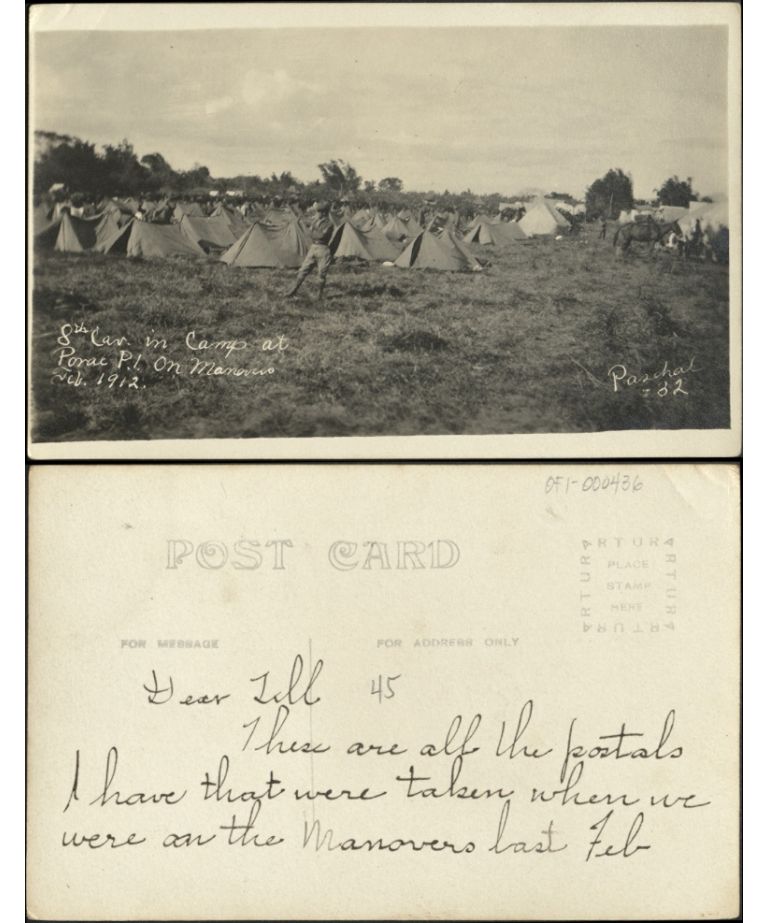 8th Cav. in Camp at
Porac P.I. On Manovers
Feb. 1912.
Paschal
-32
OF1-000436
POST CARD
ARTURA
ARTURA
PLACE
STAMP
HERE
ARTURA
ARTURA
FOR MESSAGE
FOR ADDRESS ONLY
Dear Till 45
These are all the postals
I have that were taken when we
were on the Manovers last Feb